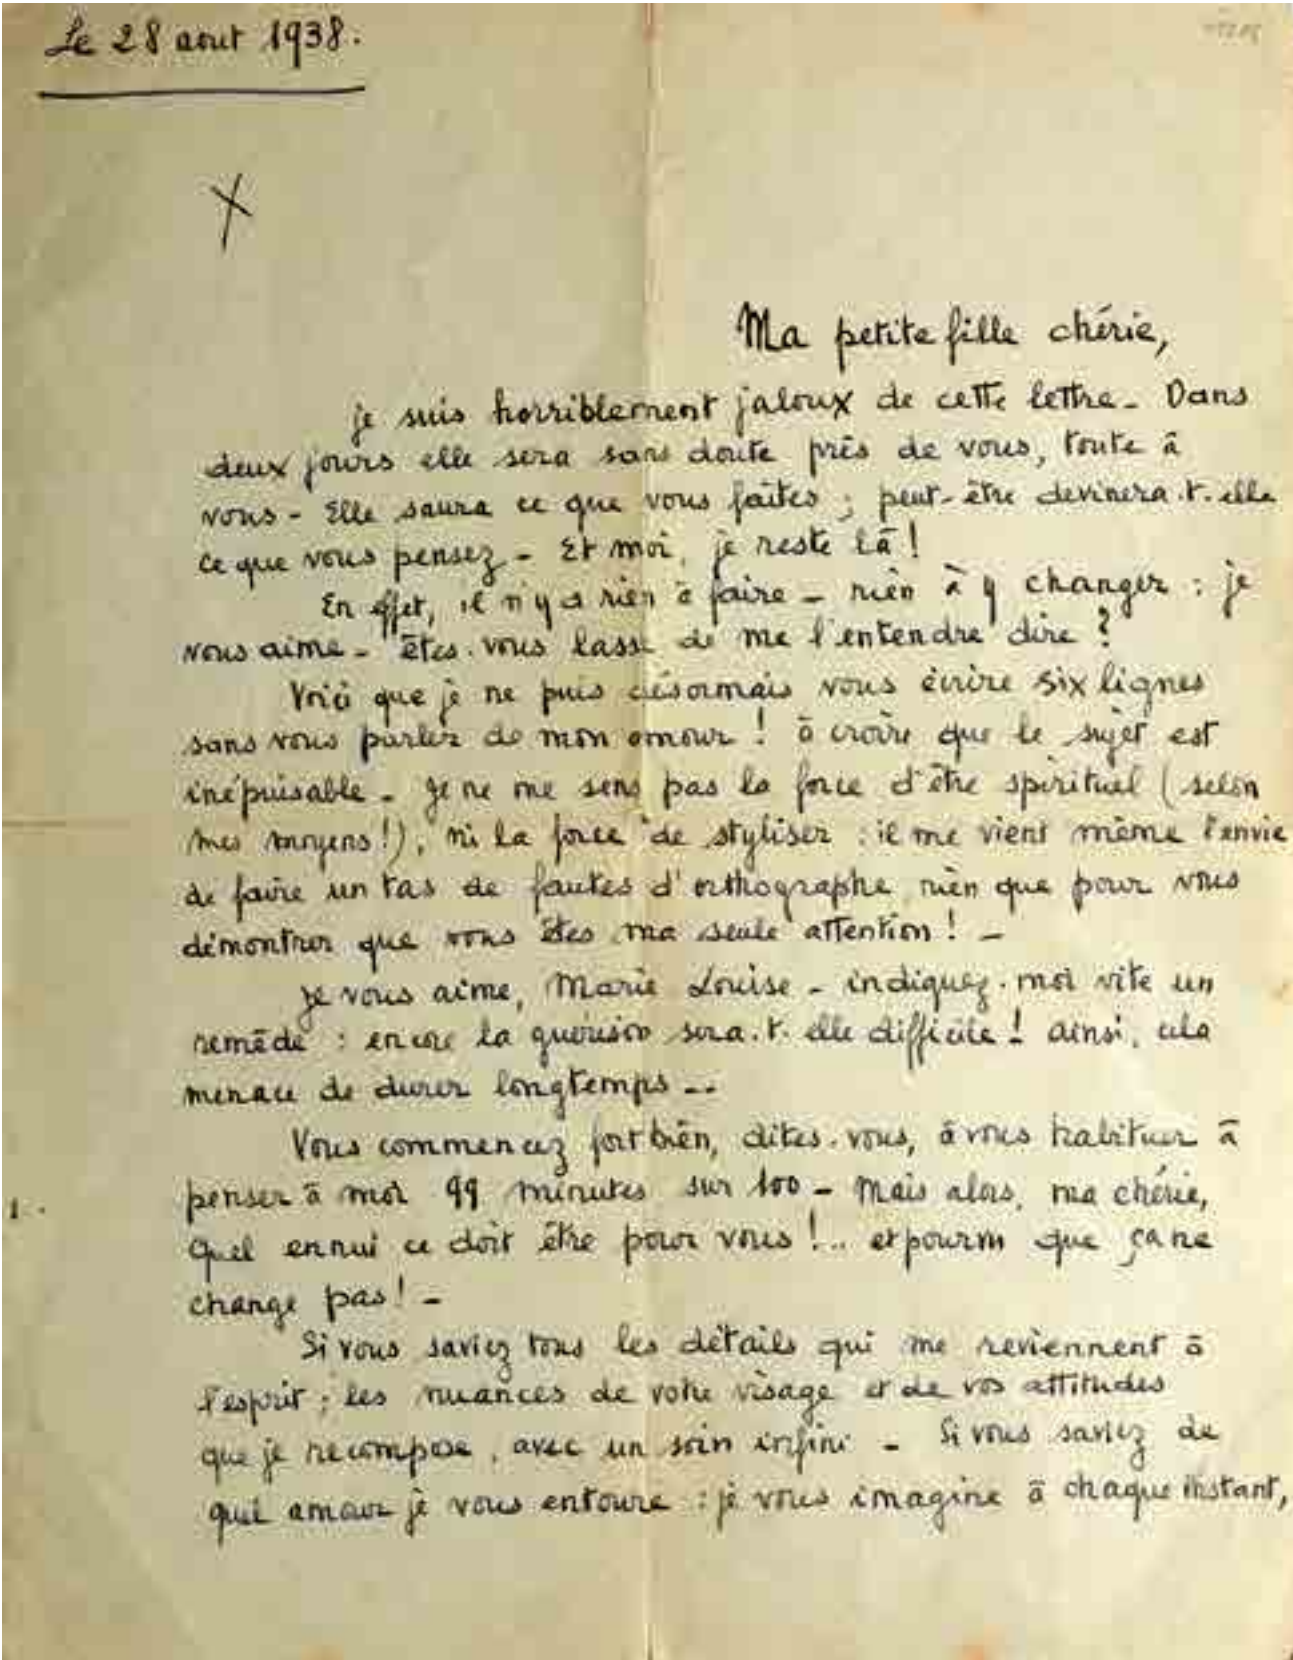 Le 28 aout 1938.
X
Ma petite fille chérie,
je suis horriblement jaloux de cette lettre - Dans
deux jours elle sera sans doute près de vous, toute à
vous - Elle saura ce que vous faites ; peut-être devinera.t.elle
ce que vous pensez - Et moi, je reste là !
En effet, il n'y a rien à faire - rien à y changer : je
vous aime - êtes.vous lasse de me l'entendre dire ?
Voici que je ne puis désormais vous écrire six lignes
sans vous parler de mon amour ! à croire que le sujet est
inépuisable - Je ne me sens pas la force d'être spirituel (selon
mes moyens !), ni la force de styliser : il me vient même l'envie
de faire un tas de fautes d'orthographe rien que pour vous
démontrer que vous êtes ma seule attention ! -
Je vous aime, Marie Louise - indiquez.moi vite un
remède : encore la guérison sera.t.elle difficile ! ainsi, cela
menace de durer longtemps --
Vous commencez fort bien, dites.vous, à vous habituer à
penser à moi 99 minutes sur 100 - Mais alors, ma chérie,
1.
quel ennui ce doit être pour vous !.. et pourvu que ça ne
change pas ! -
Si vous saviez tous les détails qui me reviennent à
l'esprit ; les nuances de votre visage et de vos attitudes
que je recompose, avec un soin infini - Si vous saviez de
quel amour je vous entoure : je vous imagine à chaque instant,